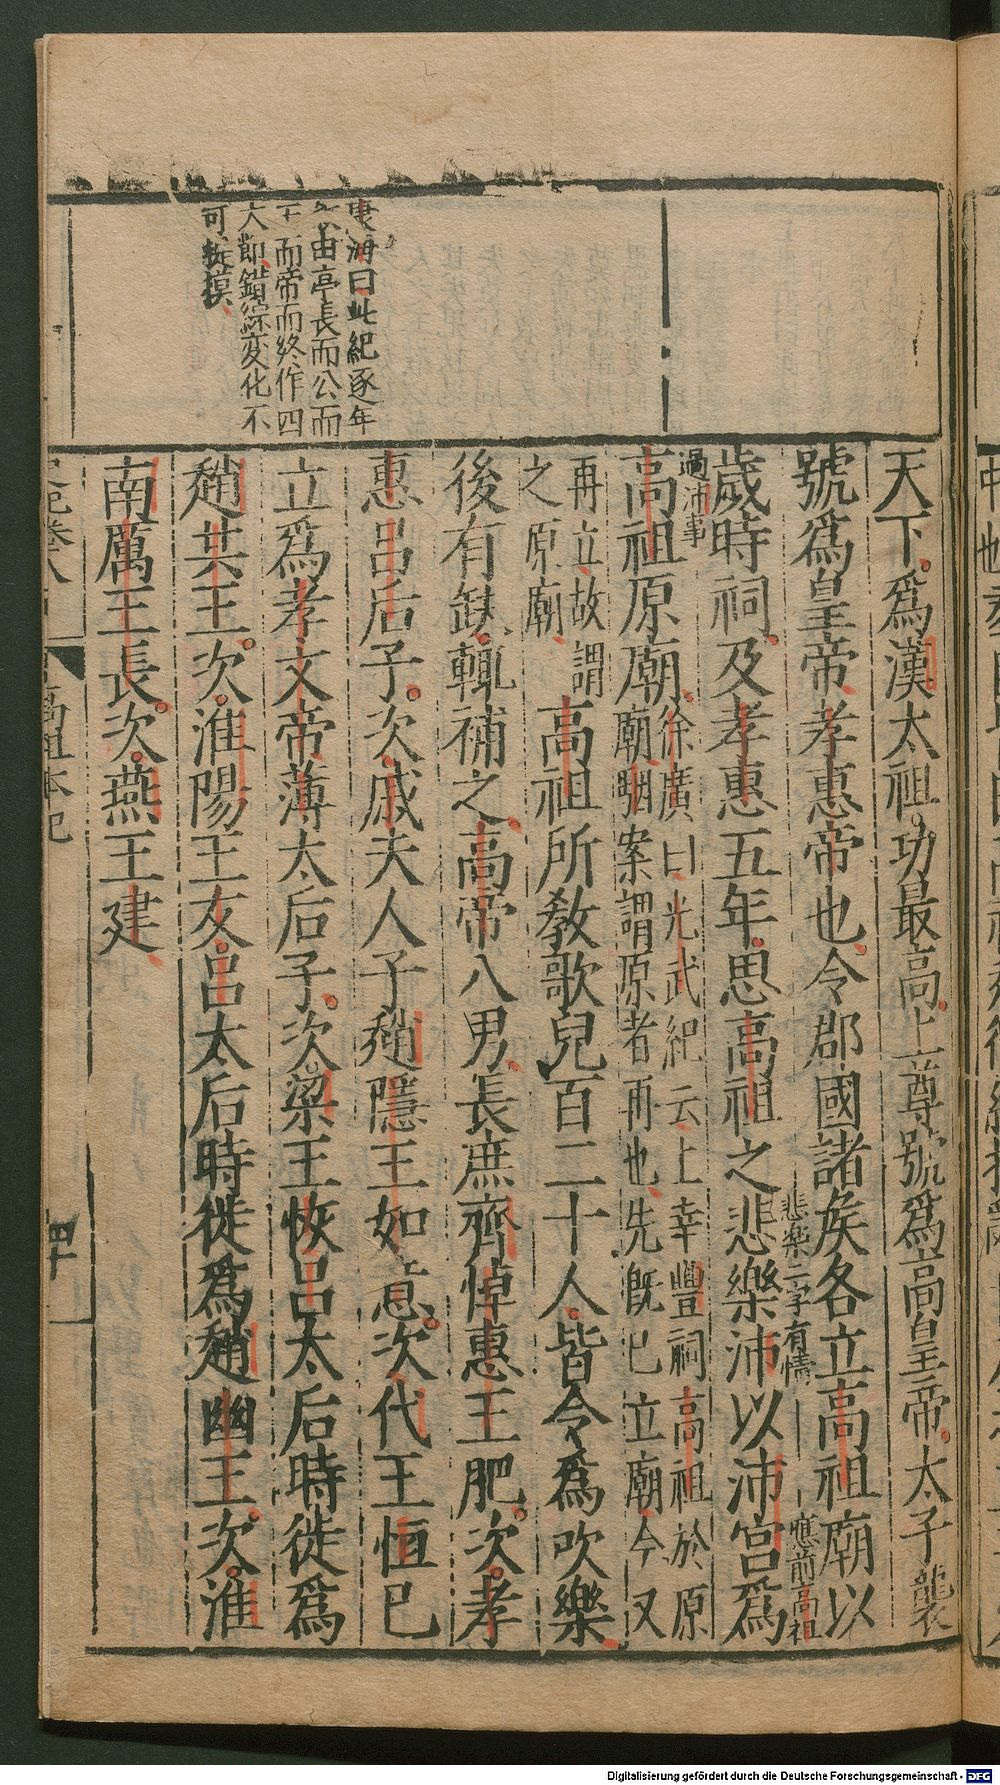 東海曰此紀逐年
由亭長而公而
王而帝而終作四
大節錯綜変化不
可捉摸
天下為漢太祖功最高上尊號為高皇帝太子襲
號為皇帝孝惠帝也令郡國諸矦各立高祖廟以
悲樂二字有情
應前高祖
過沛事
歲時祠及孝惠五年思高祖之悲樂沛以沛宮為
高祖原廟
徐廣曰光武紀云上幸豐祠高祖於原
廟駰案謂原者再也先旣已立廟今又
再立故謂
之原廟
高祖所敎歌兒百二十人皆令為吹樂
後有缺輒補之高帝八男長庶齊悼惠王肥次孝
惠呂后子次戚夫人子趙隱王如意次代王恒已
立為孝文帝薄太后子次梁王恢呂太后時徙為
趙共王次淮陽王友呂太后時徙為趙幽王次淮
南厲王長次燕王建
高祖本紀
四十
Digitalisierung gefördert durch die Deutsche Forschungsgemeinschaft - DFG